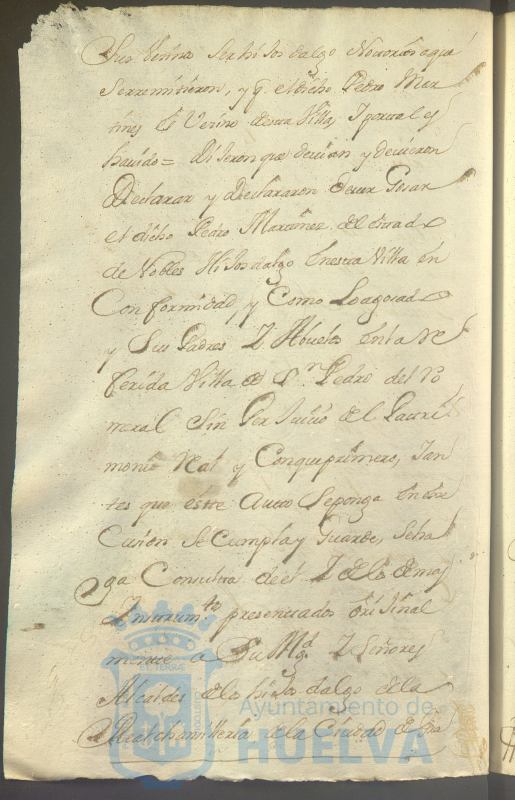 Ser hijos dalgo Notorios aqui
Se rremitieron, y q. el dicho Pedro Mar
tines Es Vecino desta Villa, Y por tal es
havido = dixeron que devian y devieron
Declarar y declararon dever Gosar
el dicho Pedro Martines del estado
de Nobles Hijosdalgo en esta Villa en
Conformidad, y Como Lo agosado
y Sus Padres Y Abuelos en la Re
ferida Villa de Sn Pedro del Ro
meral Sin Perjuicio del Patri
monio Real y Conque primero, Y an
tes que este Auto Seponga en exe
Cusion Se Cumpla y Guarde, Seha
ga Consulta de el Y de los demas
Ynstrumtos presentados original
mente a Su Magd Y Señores
Alcaldes de los hijos dalgo de la
Real chansilleria de la Ciudad de Gra
Ayuntamiento de
HUELVA